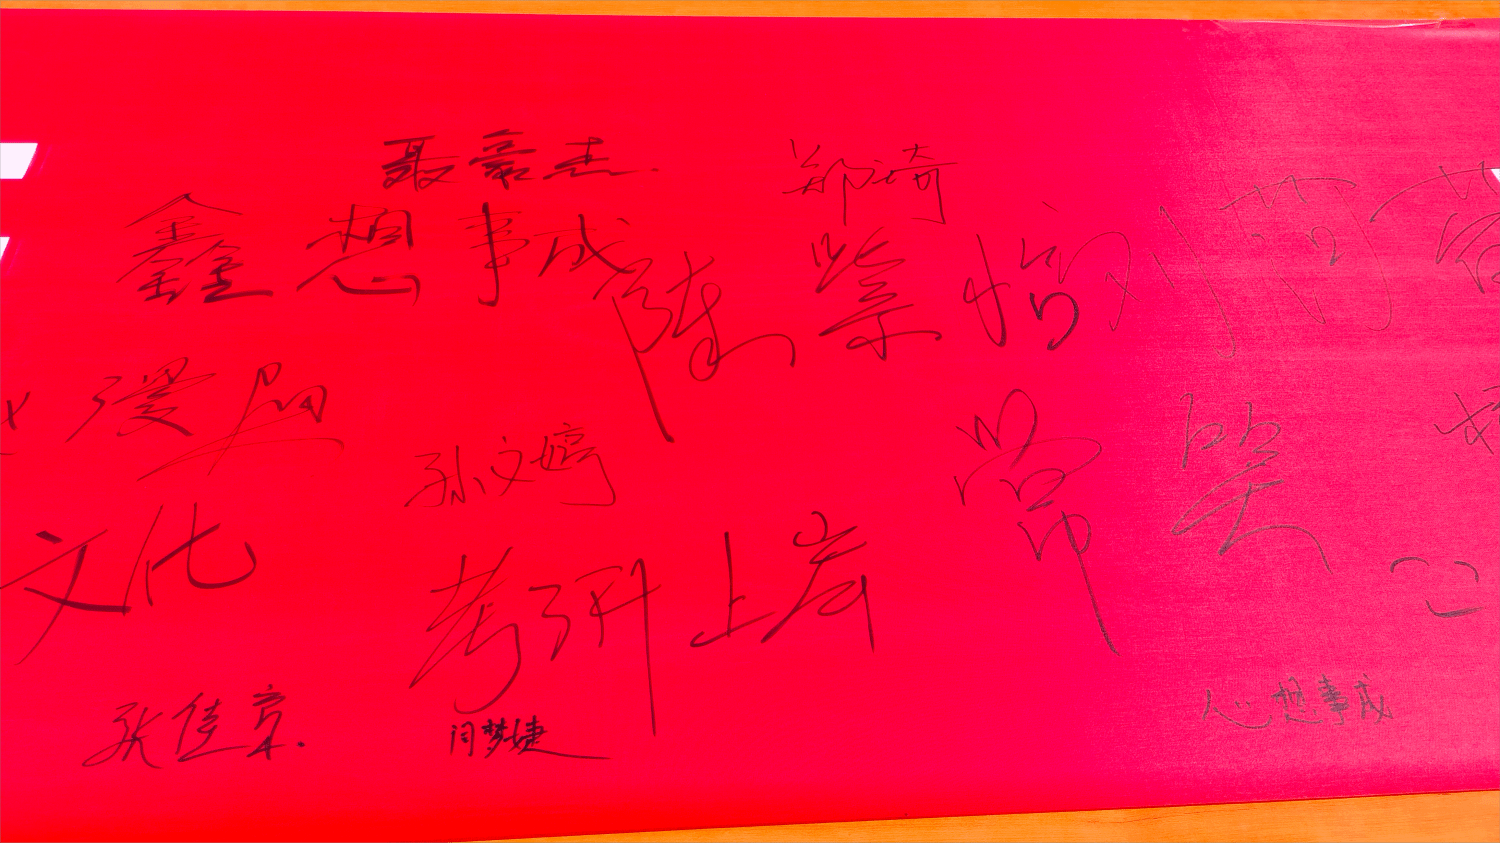 聂豪杰
郑琦
鑫想事成
陈紫怡
刘
孙文婷
文化
考研上岸
常笑
张佳京
闫梦婕
人心想事成